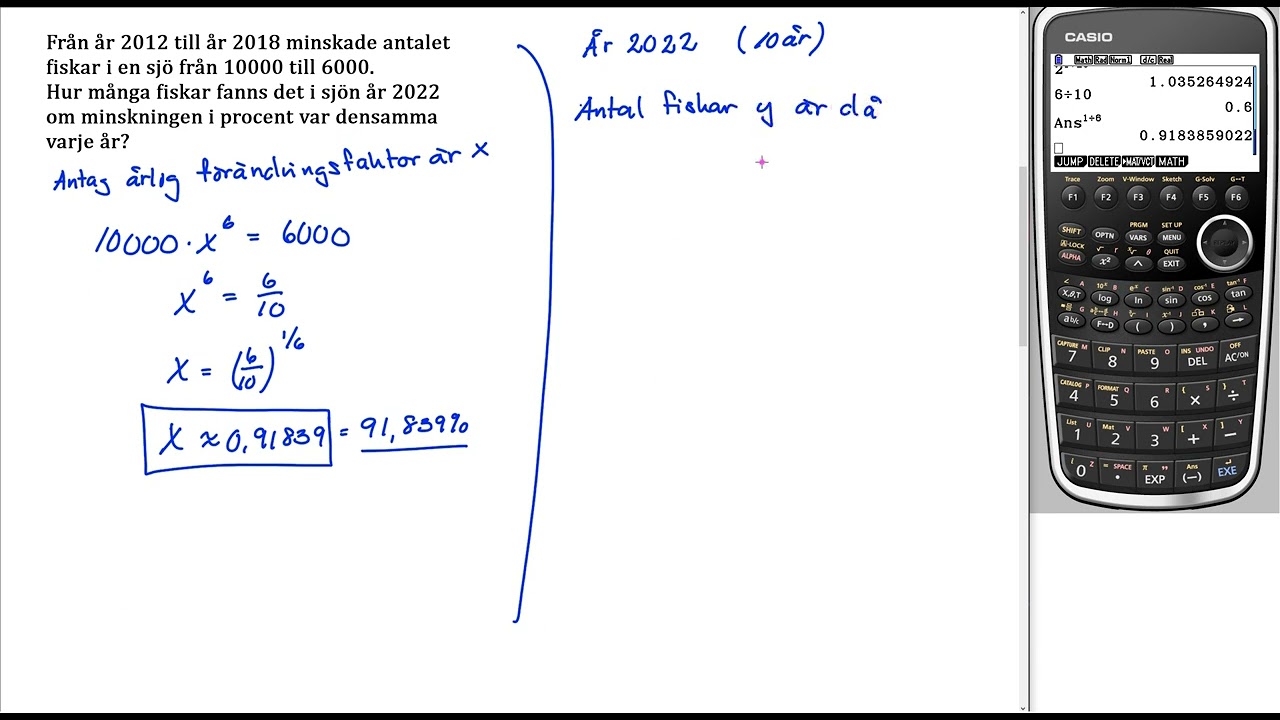 Från år 2012 till år 2018 minskade antalet
fiskar i en sjö från 10000 till 6000.
Hur många fiskar fanns det i sjön år 2022
om minskningen i procent var densamma
varje år?
Antag årlig förändringsfaktor är x
10000 · x^6 = 6000
x^6 = 6/10
x = (6/10)^1/6
x ≈ 0,91839 = 91,839%
År 2022 (10 år)
Antal fiskar y är då
CASIO
Math Rad Norm1 d/c Real
1.035264924
6÷10
0.6
Ans^1÷6
0.9183859022
JUMP DELETE ►MAT/VCT MATH
Trace Zoom V-Window Sketch G-Solv G↔T
F1 F2 F3 F4 F5 F6
PRGM SET UP
SHIFT OPTN VARS MENU
A-LOCK QUIT
ALPHA x² ^ EXIT
X,θ,T log ln sin cos tan
a b/c F↔D ( ) , →
CAPTURE M CLIP N PASTE O INS UNDO OFF
7 8 9 DEL AC/ON
CATALOG P FORMAT Q R { S } T
4 5 6 × ÷
List U Mat V W [ X ] Y
1 2 3 + −
i Z = SPACE π " Ans
0 . EXP (−) EXE